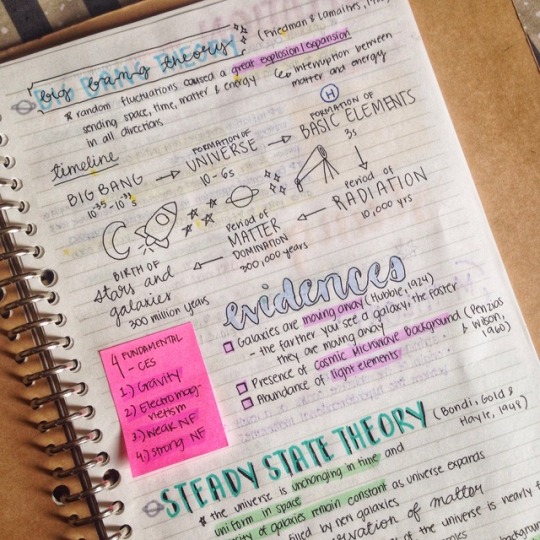 big bang theory (Friedman & Lamaitres,
BIG BANG THEORY
* random fluctuations caused a great explosion/expansion
sending space, time, matter & energy
in all directions
↳ interruption between
matter and energy
timeline
BIG BANG
→
FORMATION OF
UNIVERSE
10-6s
→
H
FORMATION OF
BASIC ELEMENTS
3s
Period of
RADIATION
10,000 yrs
←
Period of
MATTER
DOMINATION
300,000 years
←
BIRTH OF
stars and
galaxies
300 million years
4 FUNDAMENTAL
-CES
1.) Gravity
2.) Electromag-
netism
3.) weak NF
4.) strong NF
evidences
Galaxies are moving away (Hubble, 1924)
- the farther you see a galaxy, the faster
they are moving away
Presence of cosmic microwave background (Penzias
& Wilson,
1960)
Abundance of light elements
STEADY STATE THEORY (Bondi, Gold &
Hoyle, 1948)
* the universe is unchanging in time and
uniform in space
of galaxies remain constant as universe expands
filled by new galaxies
of matter
of the universe is nearly